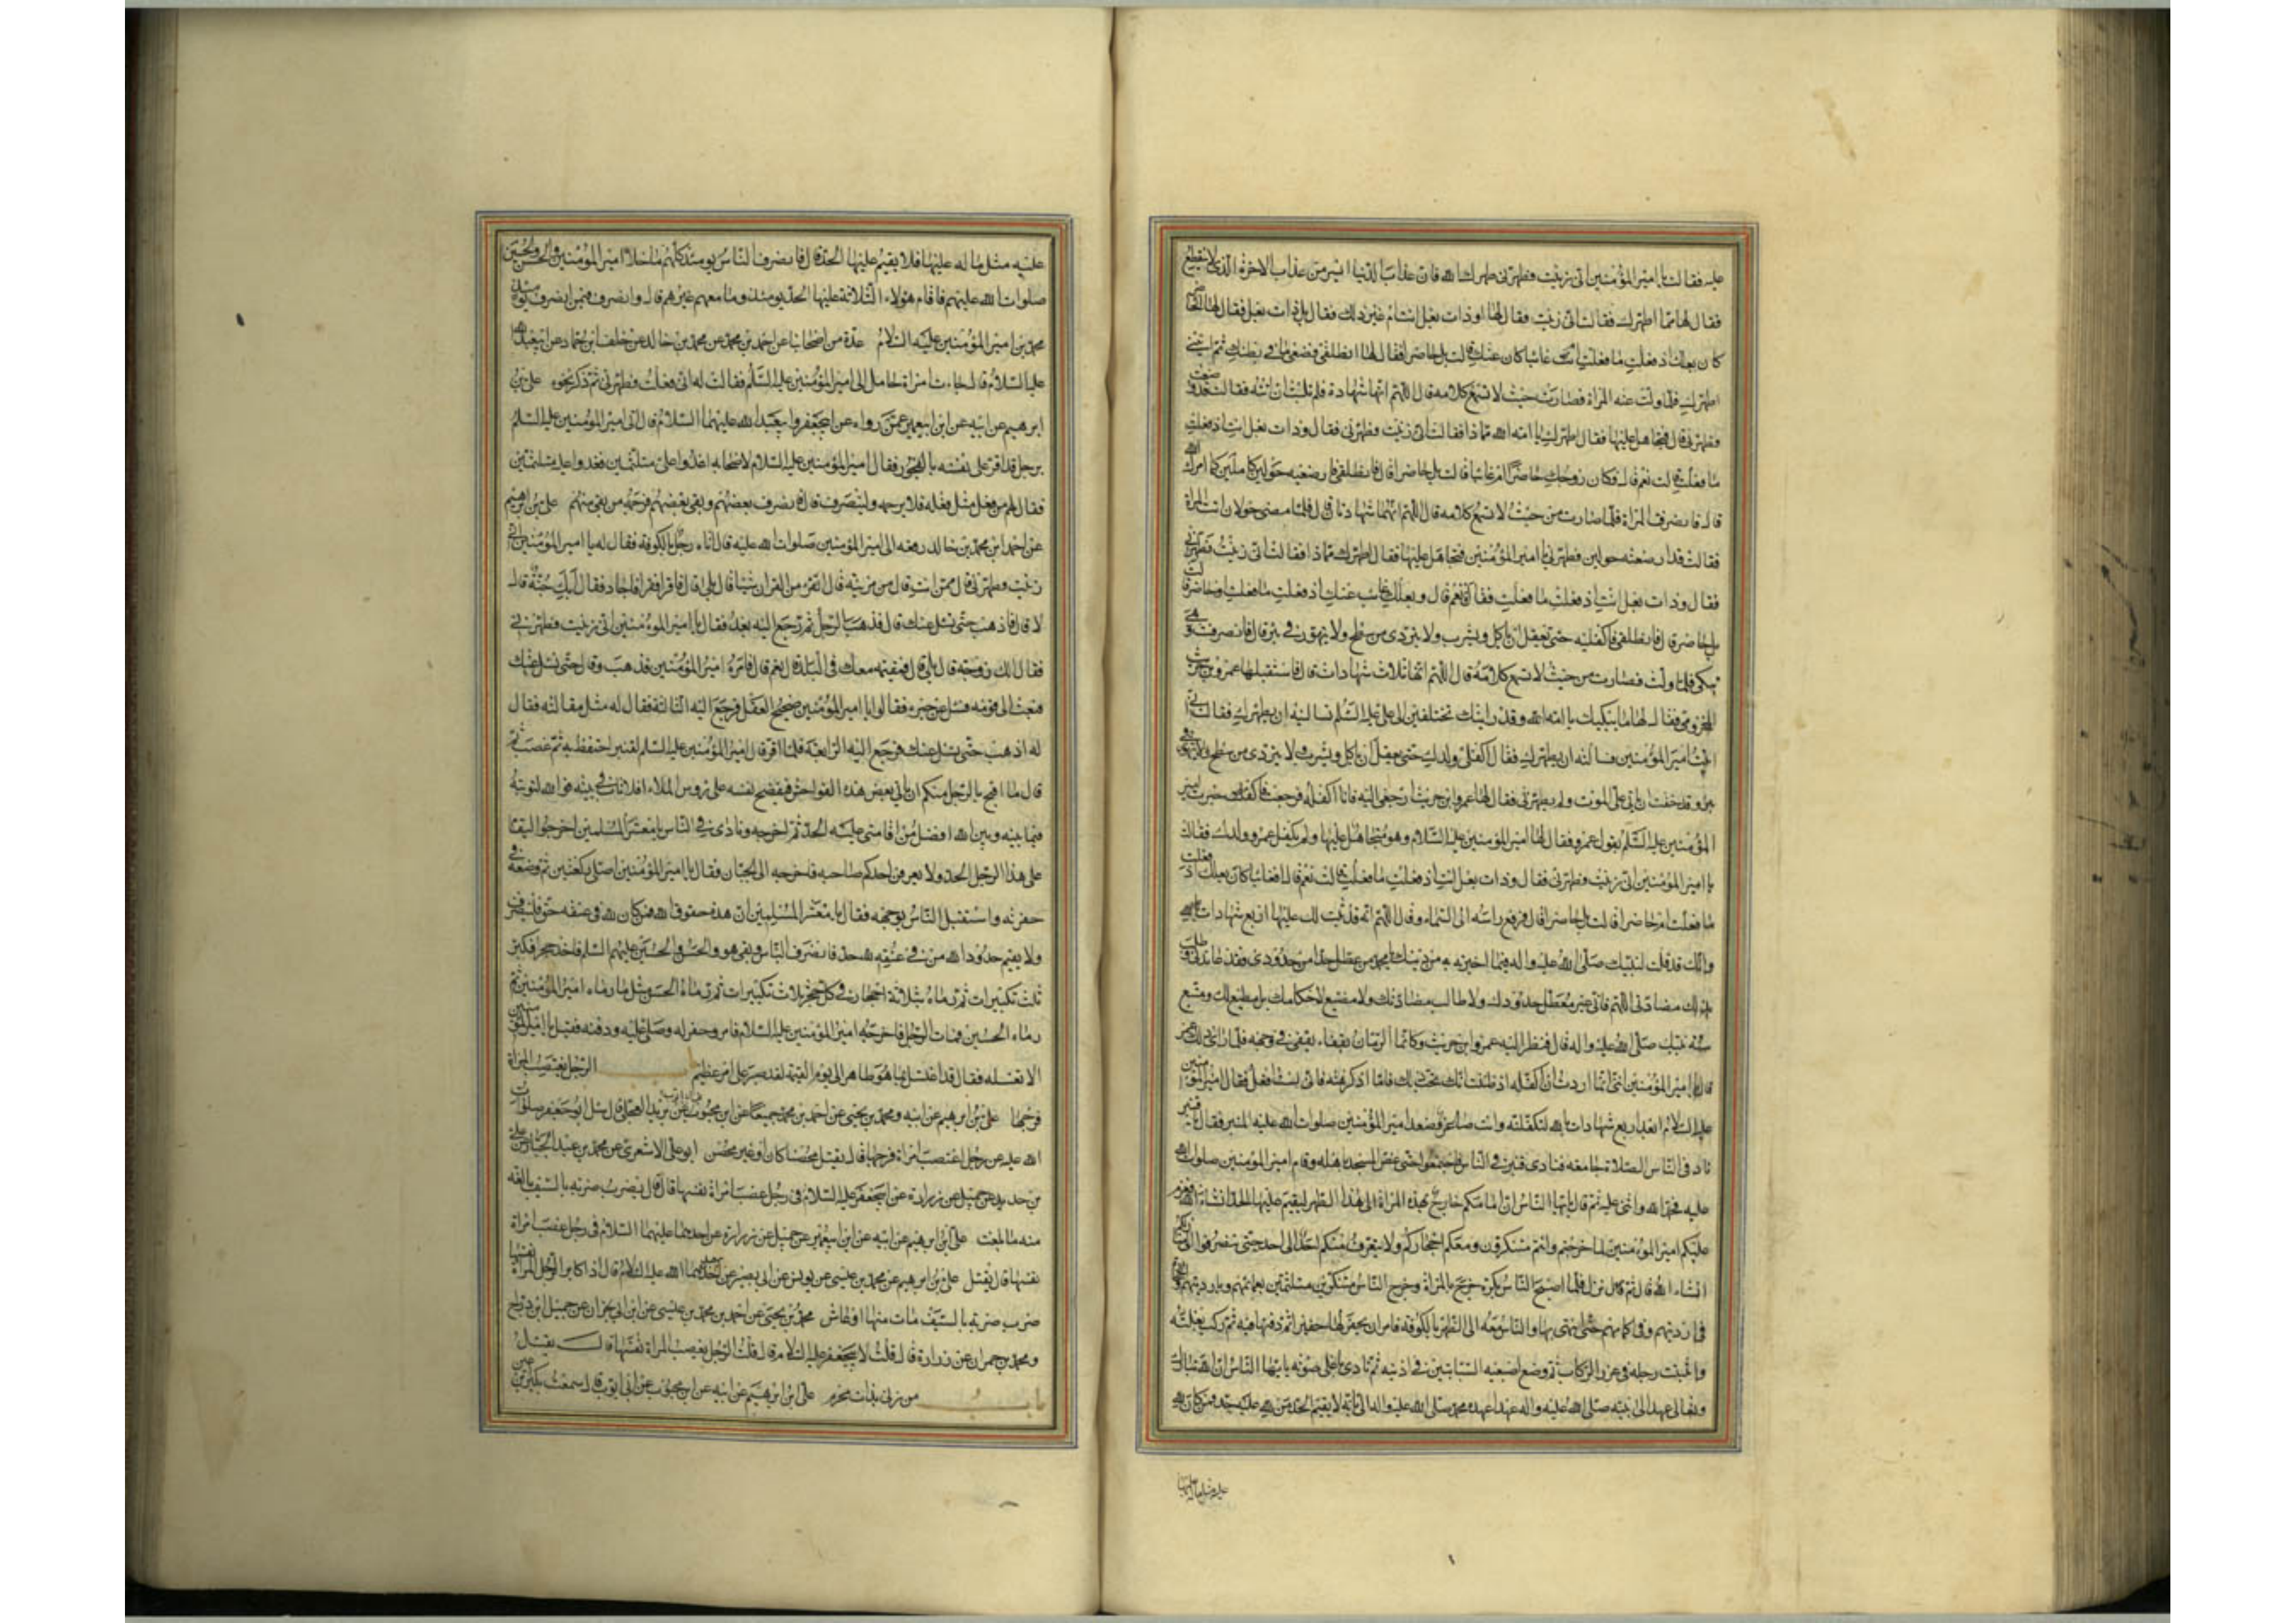 عليه فقالت يا امير المؤمنين اني زنيت فطهرني طهرك الله فان عذاب الدنيا ايسر من عذاب الاخرة الذي لا ينقطع
فقال لها مما اطهرك فقالت اني زنيت فقال لها اوذات بعل انت ام غير ذلك فقال بل ذات بعل فقال لها افحاضرا
كان بعلك اذ فعلت ما فعلت ام غائبا كان عنك قالت بل حاضرا فقال لها انطلقي فضعي ما في بطنك ثم ايتيني
اطهرك فلما ولت عنه المراة فصارت حيث لا تسمع كلامه قال اللهم انها شهادة فلم تلبث ان اتته فقالت قد وضعت
فطهرني قال فتجاهل عليها فقال اطهرك يا امة الله مما ذا فقالت اني زنيت فطهرني فقال وذات بعل انت اذ فعلت
ما فعلت قالت نعم قال فكان زوجك حاضرا ام غائبا قالت بل حاضرا قال فانطلقي فارضعيه حولين كاملين كما امرك الله
قال فانصرفت المراة فلما صارت من حيث لا تسمع كلامه قال اللهم انهما شهادتان قال فلما مضى حولان اتت المراة
فقالت قد ارضعته حولين فطهرني يا امير المؤمنين فتجاهل عليها فقال اطهرك مما ذا فقالت اني زنيت فطهرني
فقال وذات بعل انت اذ فعلت ما فعلت فقالت نعم قال وبعلك غائب عنك اذ فعلت ما فعلت او حاضر قالت
بل حاضر قال فانطلقي فاكفليه حتى يعقل ان ياكل ويشرب ولا يتردى من سطح ولا يتهور في بئر قال فانصرفت وهي
تبكي فلما ولت فصارت من حيث لا تسمع كلامه قال اللهم انها ثلاث شهادات قال فاستقبلها عمرو بن حريث
المخزومي فقال لها ما يبكيك يا امة الله وقد رايتك تختلفين الى علي عليه السلم تسالينه ان يطهرك فقالت اني
اتيت امير المؤمنين فسالته ان يطهرني فقال اكفلي ولدك حتى يعقل ان ياكل ويشرب ولا يتردى من سطح ولا يتهور في
بئر وقد خفت ان ياتي علي الموت ولم يطهرني فقال لها عمرو ابن حريث ارجعي اليه فانا اكفله فرجعت فاخبرت امير
المؤمنين عليه السلم بقول عمرو فقال لها امير المؤمنين عليه السلام وهو متجاهل عليها ولم يكفل عمرو ولدك فقالت
يا امير المؤمنين اني زنيت فطهرني فقال وذات بعل انت اذ فعلت ما فعلت قالت نعم قال افغائبا كان بعلك اذ فعلت
ما فعلت ام حاضرا قالت بل حاضرا قال فرفع راسه الى السماء وقال اللهم انه قد ثبت لك عليها اربع شهادات
وانك قد قلت لنبيك صلى الله عليه واله فيما اخبرته به من دينك يا محمد من عطل حدا من حدودي فقد عاندني وطلب
بذلك مضادتي اللهم فاني غير معطل حدودك ولا طالب مضادتك ولا مضيع لاحكامك بل مطيع لك ومتبع
سنة نبيك صلى الله عليه واله قال فنظر اليه عمرو ابن حريث وكانما الرمان يفقا في وجهه فلما راى ذلك عمرو
قال يا امير المؤمنين انني انما اردت ان اكفله اذ ظننت انك تحب ذلك فاما اذ كرهته فاني لست افعل فقال امير المؤمنين
عليه السلام ابعد اربع شهادات بالله لتكفلنه وانت صاغر فصعد امير المؤمنين صلوات الله عليه المنبر فقال يا قنبر
ناد في الناس الصلاة جامعة فنادى قنبر في الناس فاجتمعوا حتى غص المسجد باهله وقام امير المؤمنين صلوات الله
عليه فحمد الله واثنى عليه ثم قال يا ايها الناس ان امامكم خارج بهذه المراة الى هذا الظهر ليقيم عليها الحد انشاء الله فعزم
عليكم امير المؤمنين لما خرجتم وانتم متنكرون ومعكم احجاركم ولا يتعرف منكم احد الى احد حتى تنصرفوا الى منازلكم
انشاء الله قال ثم نزل فلما اصبح الناس بكرة خرج بالمراة وخرج الناس متنكرين متلثمين بعمائمهم وبارديتهم والحجارة
في ارديتهم وفي اكمامهم حتى انتهى بها والناس معه الى الظهر بالكوفة فامر ان يحفر لها حفيرة ثم دفنها فيه ثم ركب بغلته
واثبت رجله في غرز الركاب ثم وضع اصبعيه السبابتين في اذنيه ثم نادى باعلى صوته يا ايها الناس ان الله تبارك
وتعالى عهد الى نبيه صلى الله عليه واله عهدا عهده محمد صلى الله عليه واله الي بانه لا يقيم الحد من لله عليه حد فمن كان لله
عليه مثل ما له عليها فلا يقيم عليها الحد قال فانصرف الناس يومئذ كلهم ما خلا امير المؤمنين والحسن والحسين
صلوات الله عليهم فاقام هؤلاء الثلاثة عليها الحد يومئذ وما معهم غيرهم قال وانصرف فيمن انصرف يومئذ
محمد بن امير المؤمنين عليه السلام عدة من اصحابنا عن احمد بن محمد عن محمد بن خالد عن خلف ابن حماد عن ابي عبد الله
عليه السلام قال جاءت امراة حامل الى امير المؤمنين عليه السلم فقالت له اني فعلت فطهرني ثم ذكر نحوه علي بن
ابرهيم عن ابيه عن ابن ابي عمير عمن رواه عن ابي جعفر وابي عبد الله عليهما السلام قال اتي امير المؤمنين عليه السلم
برجل قد اقر على نفسه بالفجور فقال امير المؤمنين عليه السلام لاصحابه اغدوا علي متلثمين فغدوا عليه متلثمين
فقال لهم من فعل مثل فعله فلا يرجمه ولينصرف قال فانصرف بعضهم وبقي بعضهم فرجمه من بقي منهم علي بن ابرهيم
عن احمد ابن محمد بن خالد رفعه الى امير المؤمنين صلوات الله عليه قال اتاه رجل بالكوفة فقال له يا امير المؤمنين اني
زنيت فطهرني قال ممن انت قال من مزينة قال اتقرء من القران شيئا قال بلى قال فاقرا فقرا فاجاد فقال ابك جنة قال
لا قال فاذهب حتى نسئل عنك قال فذهب الرجل ثم رجع اليه بعد فقال يا امير المومنين اني زنيت فطهرني
فقال الك زوجة قال بلى قال فمقيمة معك في البلد قال نعم قال فامره امير المؤمنين فذهب وقال حتى نسئل عنك
فبعث الى قومه فسئل عن خبره فقالوا يا امير المؤمنين صحيح العقل فرجع اليه الثالثة فقال له مثل مقالته فقال
له اذهب حتى نسئل عنك فرجع اليه الرابعة فلما اقر قال امير المؤمنين عليه السلم لقنبر احتفظ به ثم غضب ثم
قال ما اقبح بالرجل منكم ان ياتي بعض هذه الفواحش فيفضح نفسه على رؤس الملاء افلا تاب في بيته فوالله لتوبته
فيما بينه وبين الله افضل من اقامتي عليه الحد ثم اخرجه ونادى في الناس يا معشر المسلمين اخرجوا ليقام
على هذا الرجل الحد ولا يعرفن احدكم صاحبه فاخرجه الى الجبان فقال يا امير المؤمنين اصلي ركعتين ثم وضعه في
حفرته واستقبل الناس بوجهه فقال يا معشر المسلمين ان هذه حقوق الله فمن كان لله في عنقه حق فلينصرف
ولا يقيم حدود الله من في عنقه لله حد فانصرف الناس وبقي هو والحسن والحسين عليهم السلم فاخذ حجرا فكبر
ثلث تكبيرات ثم رماه بثلاثة احجار في كل حجر ثلاث تكبيرات ثم رماه الحسن مثل ما رماه امير المؤمنين ثم
رماه الحسين فمات الرجل فاخرجه امير المؤمنين عليه السلام فامر وحفر له وصلى عليه ودفنه فقيل يا امير المؤمنين
الا تغسله فقال قد اغتسل بما هو طاهر الى يوم القيمة لقد صبر على امر عظيم باب الرجل يغتصب المراة
فرجها علي بن ابرهيم عن ابيه ومحمد بن يحيى عن احمد بن محمد جميعا عن ابن محبوب عن ابي ايوب عن بريد العجلي قال سئل ابو جعفر صلوات
الله عليه عن رجل اغتصب امراة فرجها قال يقتل محصنا كان او غير محصن ابو علي الاشعري عن محمد بن عبد الجبار عن علي
بن حديد عن جميل عن زرارة عن ابي جعفر عليه السلام في رجل غصب امراة نفسها قال قال يضرب ضربة بالسيف بالغة
منه ما بلغت علي بن ابرهيم عن ابيه عن ابن ابي عمير عن جميل عن زرارة عن احدهما عليهما السلام في رجل غصب امراة
نفسها قال يقتل علي بن ابرهيم عن محمد بن عيسى عن يونس عن ابي بصير عن ابي عبد الله عليه السلام قال اذا كابر الرجل المراة نفسها
ضرب ضربة بالسيف مات منها او عاش محمد بن يحيى عن احمد بن محمد بن عيسى عن ابن ابي نجران عن جميل ابن دراج
ومحمد بن حمران عن زرارة قال قلت لابي جعفر عليه السلام قال قلت الرجل يغصب المراة نفسها قال يقتل
باب من زنى بذات محرم علي ابن ابرهيم عن ابيه عن ابن محبوب عن ابي ايوب قال سمعت بكير بن اعين